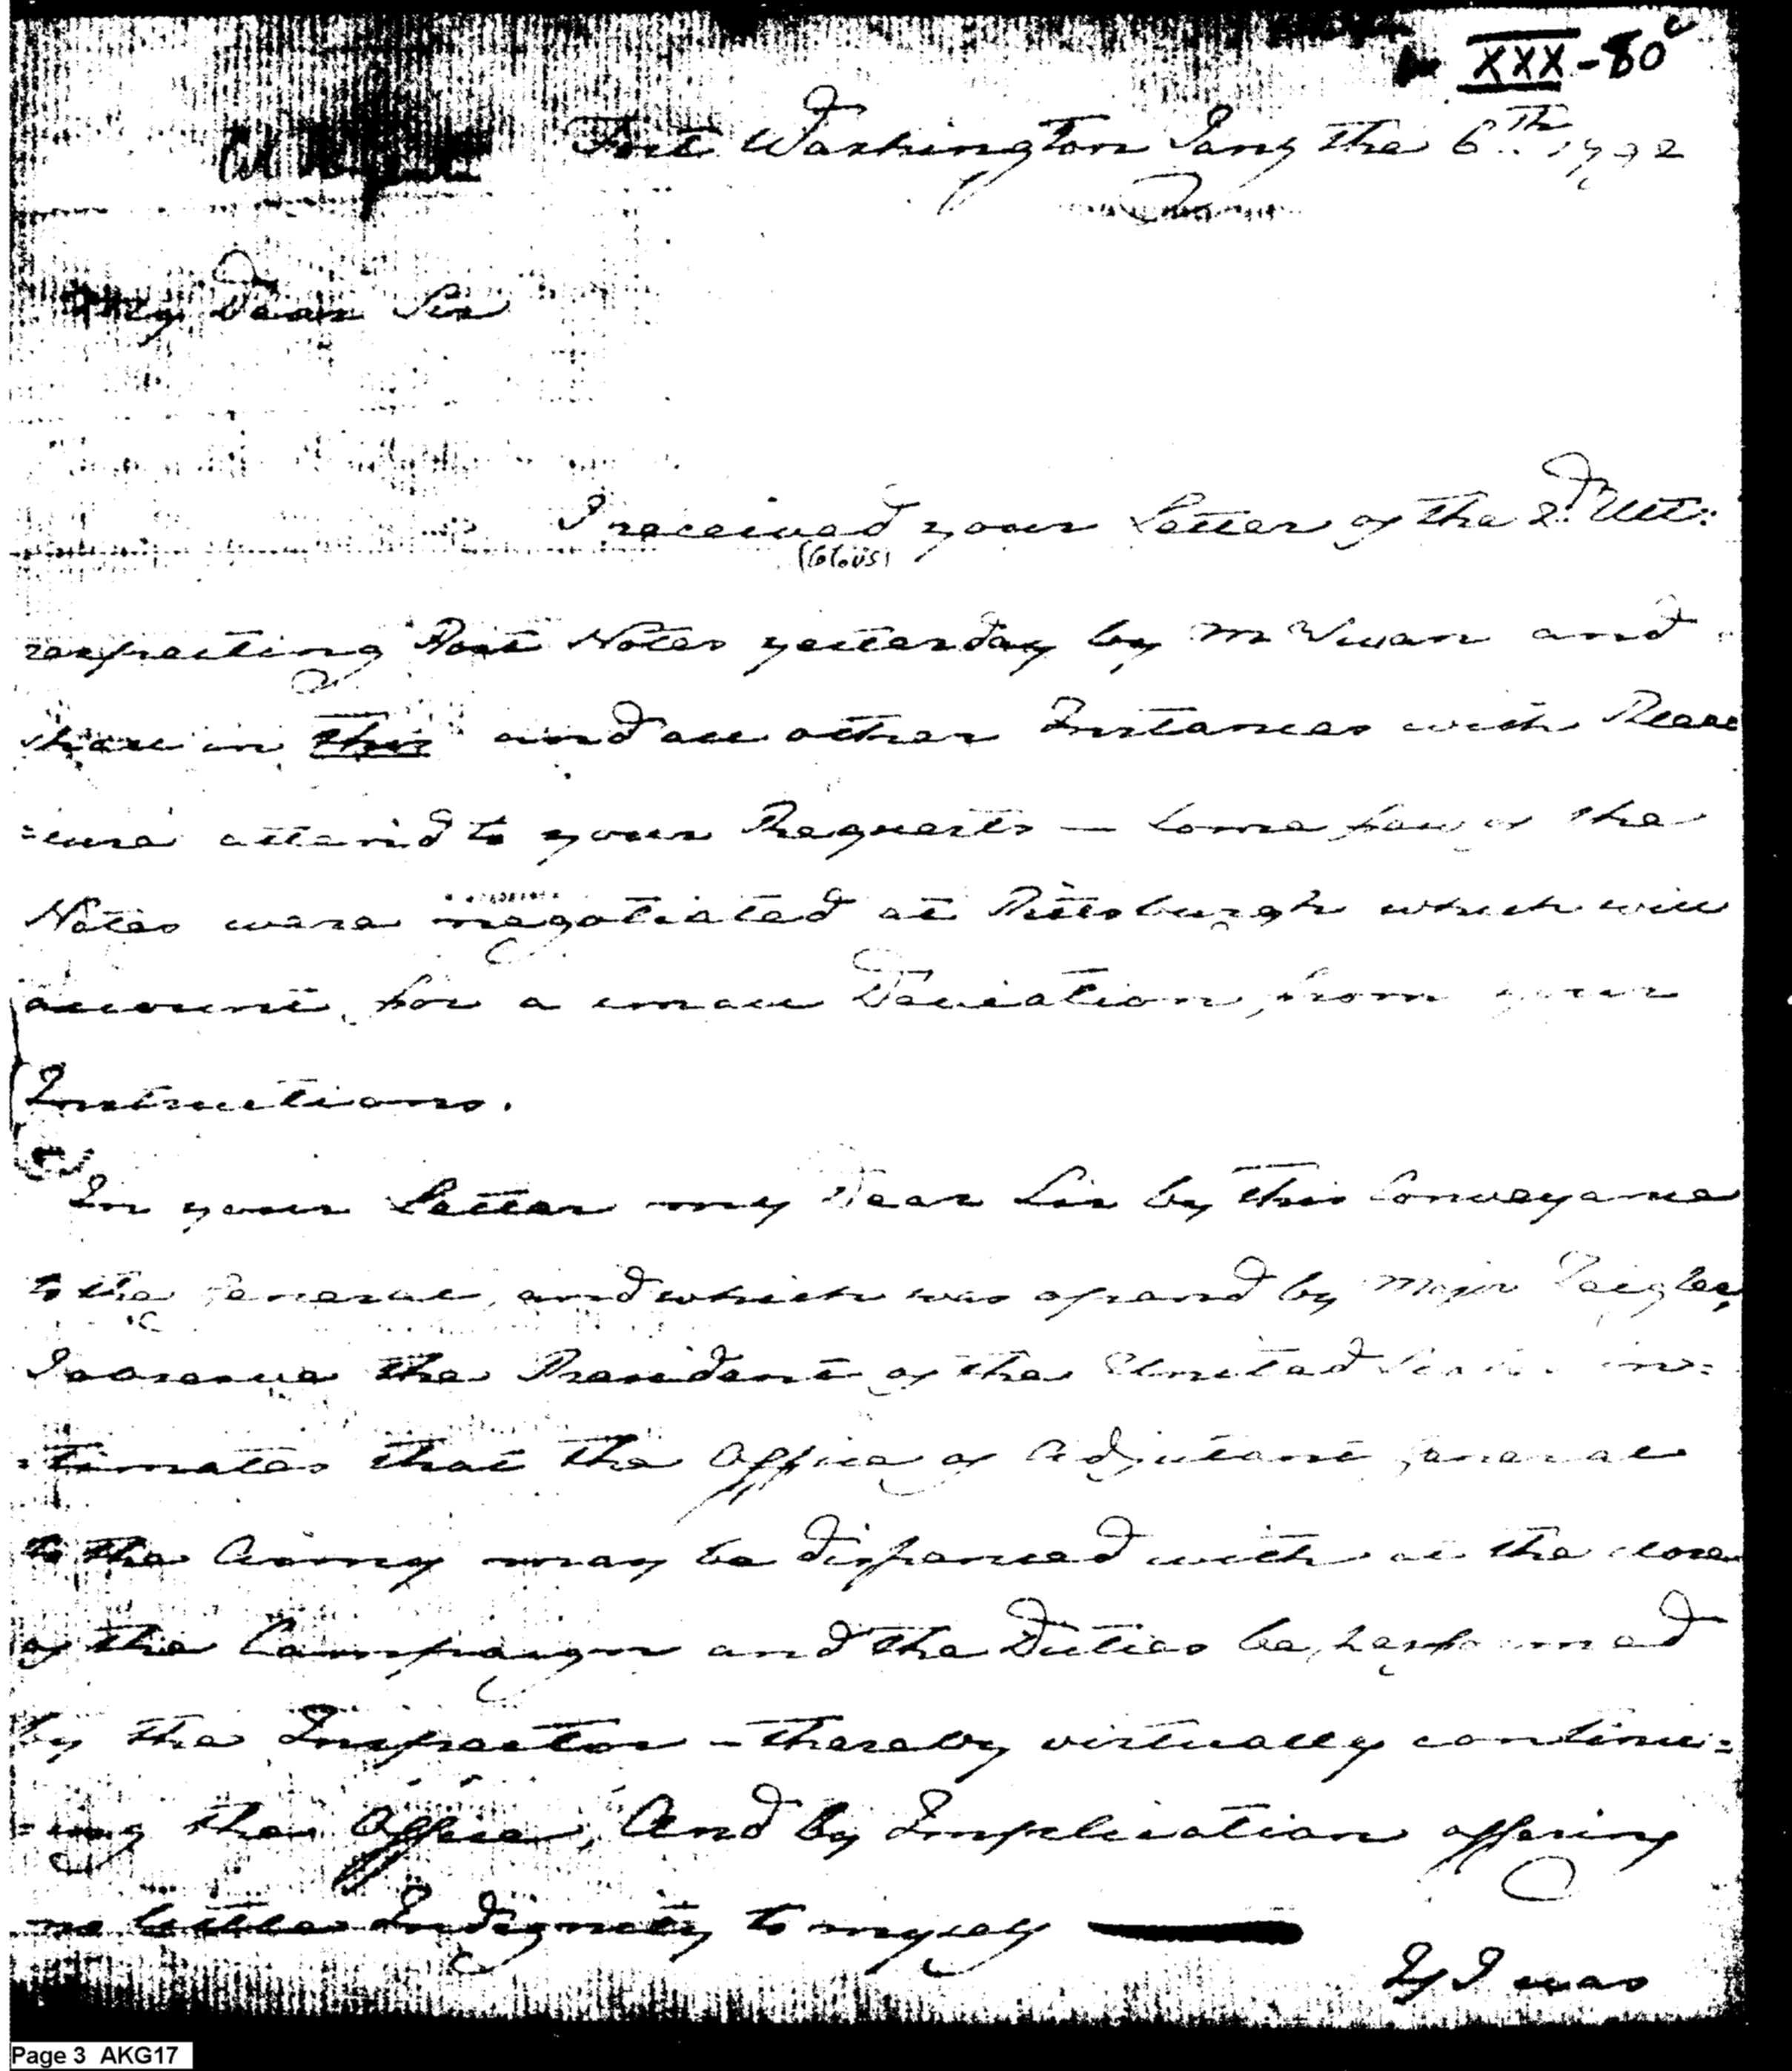 XXX-80
Fort Washington Jany the 6th 1792
My Dear Sir
I received your Letter of the 2d Ult:
respecting Post Notes yesterday by Mr Vivan and
shall in this and all other Instances with Pleas
=ure attend to your Requests — Some few of the
Notes were negotiated at Pittsburgh which will
account for a small Deviation from your
Instructions.
In your Letter my Dear Sir by this Conveyance
to the General, and which was opend by Major Zeigler,
I observe the President of the United States in=
=timates that the Office of Adjutant General
to the Army may be dispenced with at the close
of the Campaign and the Duties be performed
by the Inspector - thereby virtually continu=
=ing the Office, And by Implication offering
no little Indignity to myself
If I was
Page 3 AKG17